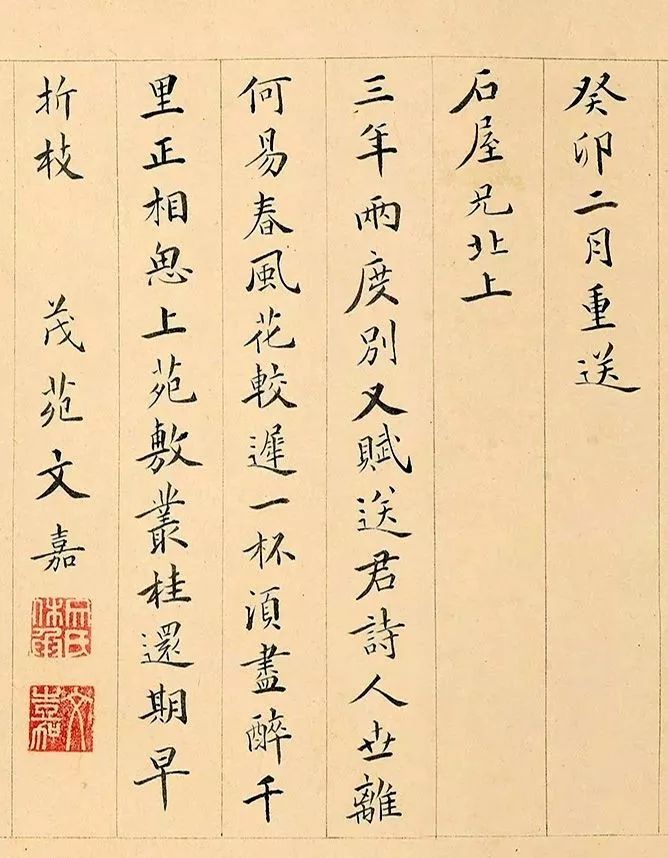 癸卯二月重送
石屋兄北上
三年兩度別又賦送君詩人世離
何易春風花較遲一杯須盡醉千
里正相思上苑敷叢桂還期早
折枝　茂苑文嘉
文嘉